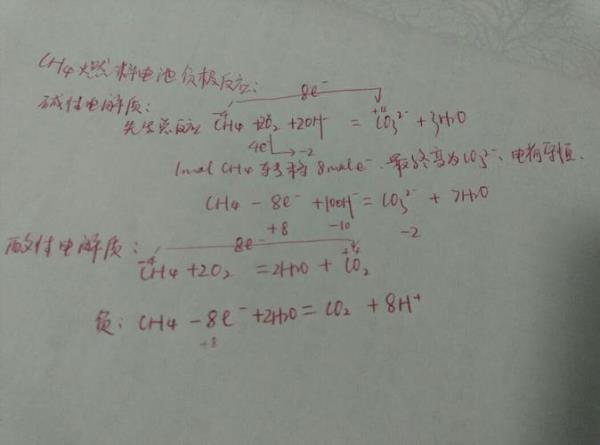 CH4燃料电池负极反应:
碱性电解质: 8e-
先写总反应 -4 CH4 + 2O2 + 2OH- = +4 CO3 2- + 3H2O
4e- → -2
1mol CH4 转移 8mol e-. 最终变为 CO3 2-、电荷守恒.
CH4 - 8e- + 10OH- = CO3 2- + 7H2O
+8 -10 -2
酸性电解质: 8e-
-4 CH4 + 2O2 = 2H2O + +4 CO2
负: CH4 - 8e- + 2H2O = CO2 + 8H+
+8